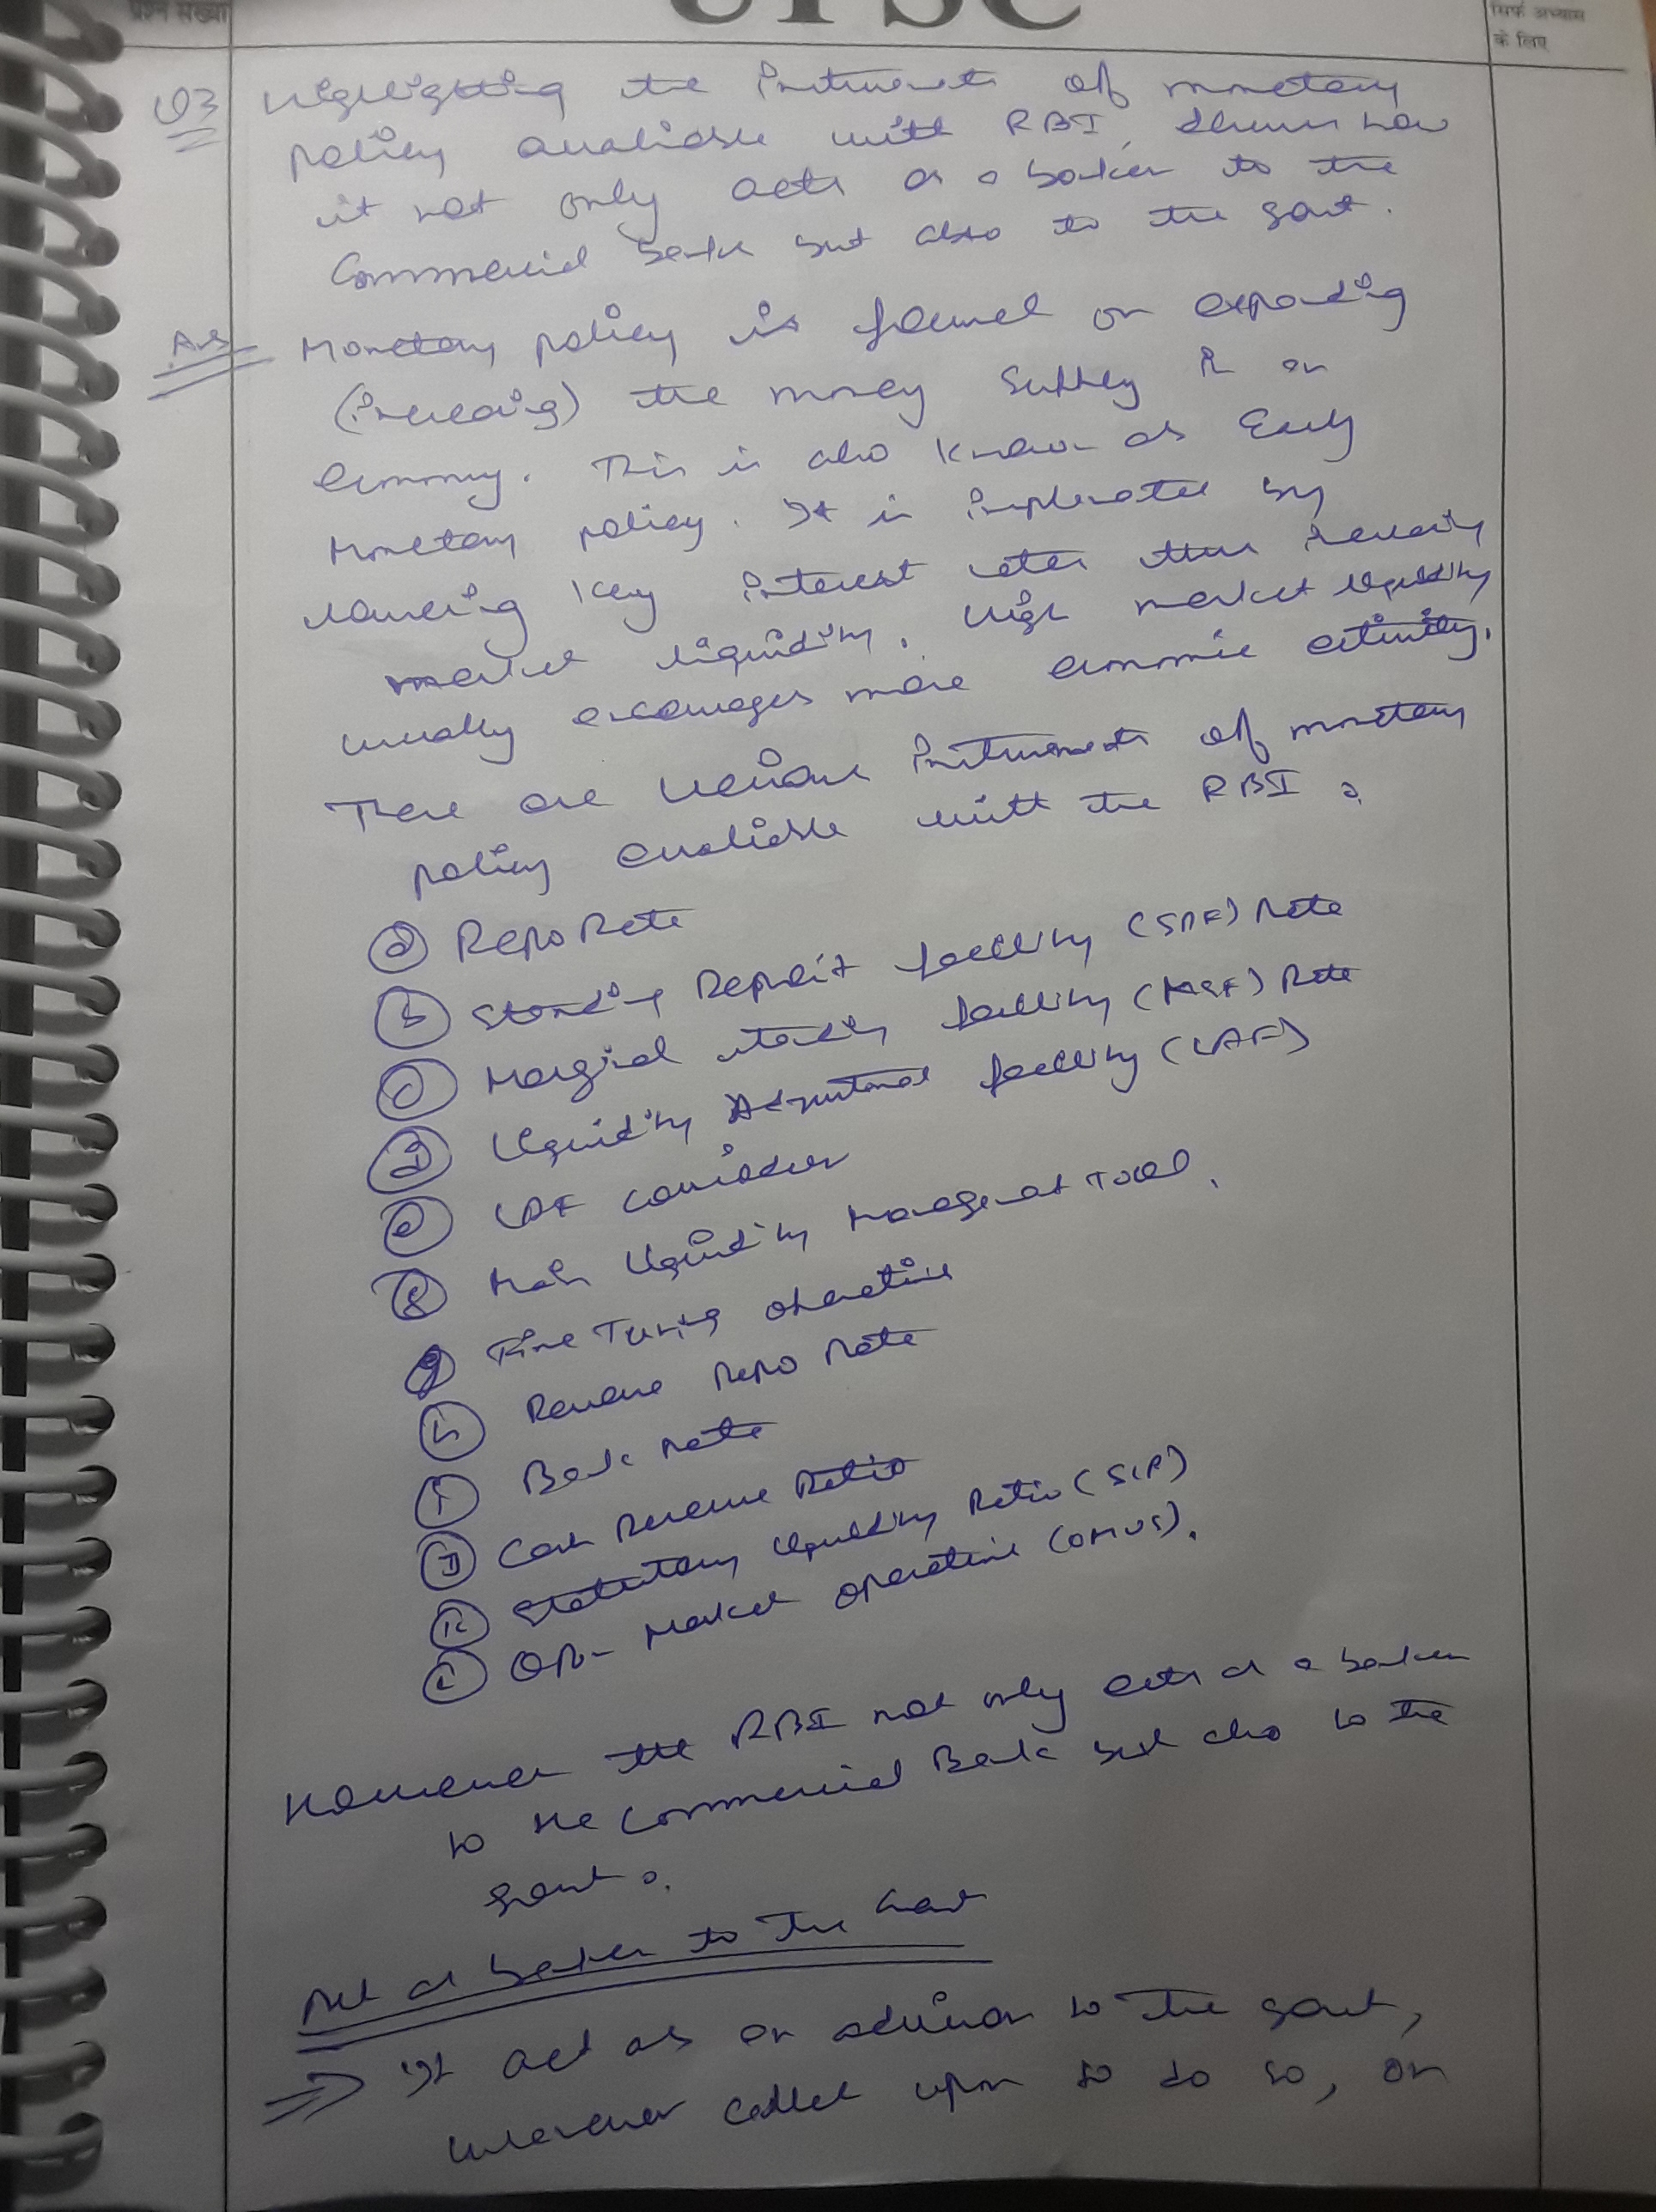 प्रश्न संख्या
UPSC
सिर्फ अभ्यास
के लिए
Q3 Highlighting the instruments of monetary
policy available with RBI, discuss how
it not only acts as a banker to the
Commercial bank but also to the govt.
Ans Monetary policy is focused on expanding
(increasing) the money supply in an
Economy. This is also known as Easy
Monetary policy. It is implemented by
lowering key interest rates thus increasing
market liquidity. High market liquidity
usually encourages more economic activity.
There are various instruments of monetary
policy available with the RBI :
(a) Repo Rate
(b) Standing Deposit facility (SDF) Rate
(c) Marginal standing facility (MSF) Rate
(d) Liquidity Adjustment facility (LAF)
(e) LAF corridor
(f) Main liquidity Management Tool.
(g) Fine Tuning operations
(h) Reverse Repo Rate
(i) Bank Rate
(j) Cash Reserve Ratio
(k) Statutory liquidity Ratio (SLR)
(l) Open Market operations (OMOs).
However the RBI not only acts as a banker
to the commercial Bank but also to the
govt :
Act as banker to the Govt
⇒ It act as an advisor to the govt,
whenever called upon to do so, on